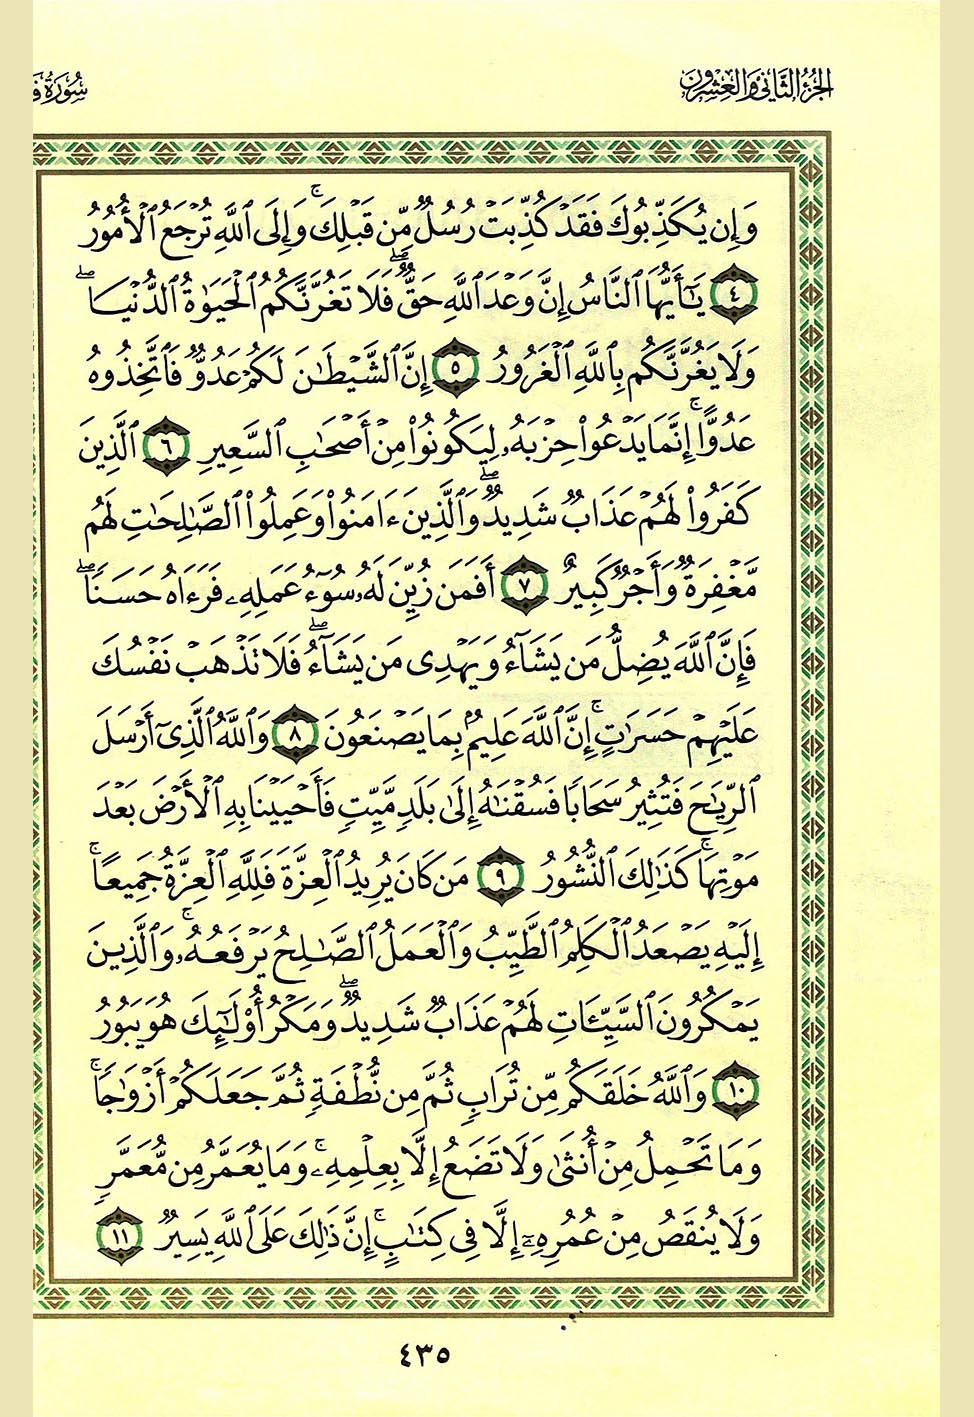 الجزء الثاني والعشرون
سورة
وَإِن يُكَذِّبُوكَ فَقَدْ كُذِّبَتْ رُسُلٌ مِّن قَبْلِكَ ۚ وَإِلَى ٱللَّهِ تُرْجَعُ ٱلْأُمُورُ
٤ يَٰٓأَيُّهَا ٱلنَّاسُ إِنَّ وَعْدَ ٱللَّهِ حَقٌّ ۖ فَلَا تَغُرَّنَّكُمُ ٱلْحَيَوٰةُ ٱلدُّنْيَا ۖ
وَلَا يَغُرَّنَّكُم بِٱللَّهِ ٱلْغَرُورُ ٥ إِنَّ ٱلشَّيْطَٰنَ لَكُمْ عَدُوٌّ فَٱتَّخِذُوهُ
عَدُوًّا ۚ إِنَّمَا يَدْعُوا۟ حِزْبَهُۥ لِيَكُونُوا۟ مِنْ أَصْحَٰبِ ٱلسَّعِيرِ ٦ ٱلَّذِينَ
كَفَرُوا۟ لَهُمْ عَذَابٌ شَدِيدٌ ۖ وَٱلَّذِينَ ءَامَنُوا۟ وَعَمِلُوا۟ ٱلصَّٰلِحَٰتِ لَهُم
مَّغْفِرَةٌ وَأَجْرٌ كَبِيرٌ ٧ أَفَمَن زُيِّنَ لَهُۥ سُوٓءُ عَمَلِهِۦ فَرَءَاهُ حَسَنًا ۖ
فَإِنَّ ٱللَّهَ يُضِلُّ مَن يَشَآءُ وَيَهْدِى مَن يَشَآءُ ۖ فَلَا تَذْهَبْ نَفْسُكَ
عَلَيْهِمْ حَسَرَٰتٍ ۚ إِنَّ ٱللَّهَ عَلِيمٌۢ بِمَا يَصْنَعُونَ ٨ وَٱللَّهُ ٱلَّذِىٓ أَرْسَلَ
ٱلرِّيَٰحَ فَتُثِيرُ سَحَابًا فَسُقْنَٰهُ إِلَىٰ بَلَدٍ مَّيِّتٍ فَأَحْيَيْنَا بِهِ ٱلْأَرْضَ بَعْدَ
مَوْتِهَا ۚ كَذَٰلِكَ ٱلنُّشُورُ ٩ مَن كَانَ يُرِيدُ ٱلْعِزَّةَ فَلِلَّهِ ٱلْعِزَّةُ جَمِيعًا ۚ
إِلَيْهِ يَصْعَدُ ٱلْكَلِمُ ٱلطَّيِّبُ وَٱلْعَمَلُ ٱلصَّٰلِحُ يَرْفَعُهُۥ ۚ وَٱلَّذِينَ
يَمْكُرُونَ ٱلسَّيِّـَٔاتِ لَهُمْ عَذَابٌ شَدِيدٌ ۖ وَمَكْرُ أُو۟لَٰٓئِكَ هُوَ يَبُورُ
١٠ وَٱللَّهُ خَلَقَكُم مِّن تُرَابٍ ثُمَّ مِن نُّطْفَةٍ ثُمَّ جَعَلَكُمْ أَزْوَٰجًا ۚ
وَمَا تَحْمِلُ مِنْ أُنثَىٰ وَلَا تَضَعُ إِلَّا بِعِلْمِهِۦ ۚ وَمَا يُعَمَّرُ مِن مُّعَمَّرٍ
وَلَا يُنقَصُ مِنْ عُمُرِهِۦٓ إِلَّا فِى كِتَٰبٍ ۚ إِنَّ ذَٰلِكَ عَلَى ٱللَّهِ يَسِيرٌ ١١
٤٣٥